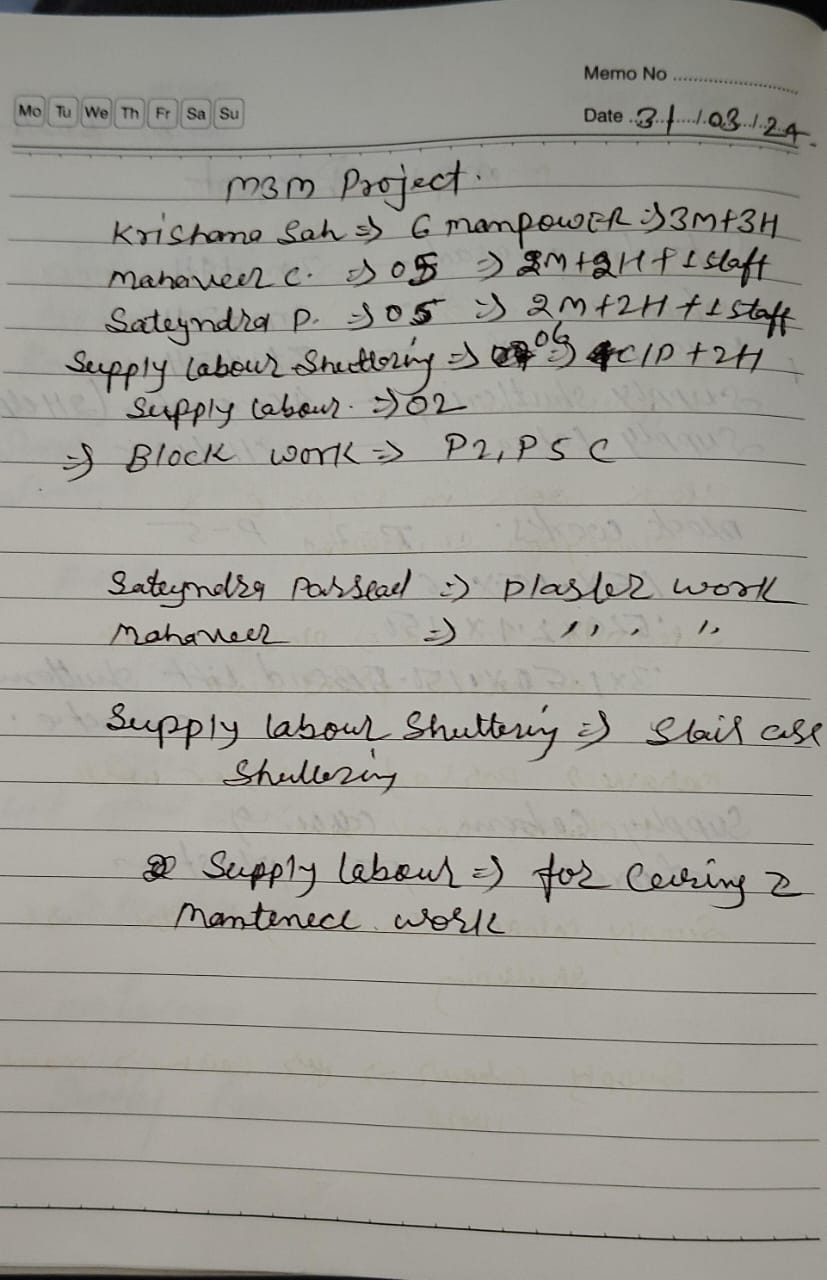 Memo No
Mo Tu We Th Fr Sa Su
Date 31/03/24
M3M Project.
Krishana Sah => 6 manpowER => 3M+3H
Mahaveer C. => 05 => 2M+2H+1 staff
Sateyndra P. => 05 => 2M+2H+1 staff
Supply labour Shuttering => 06 => 4C/P+2H
Supply labour. => 02
=> Block work => P2, P5 C
Sateyndra Parsead => Plaster work
Mahaveer => ,, ,, ,,
Supply labour Shuttering => Stair case
Shuttering
Supply labour => for Cewring &
Mantenece work